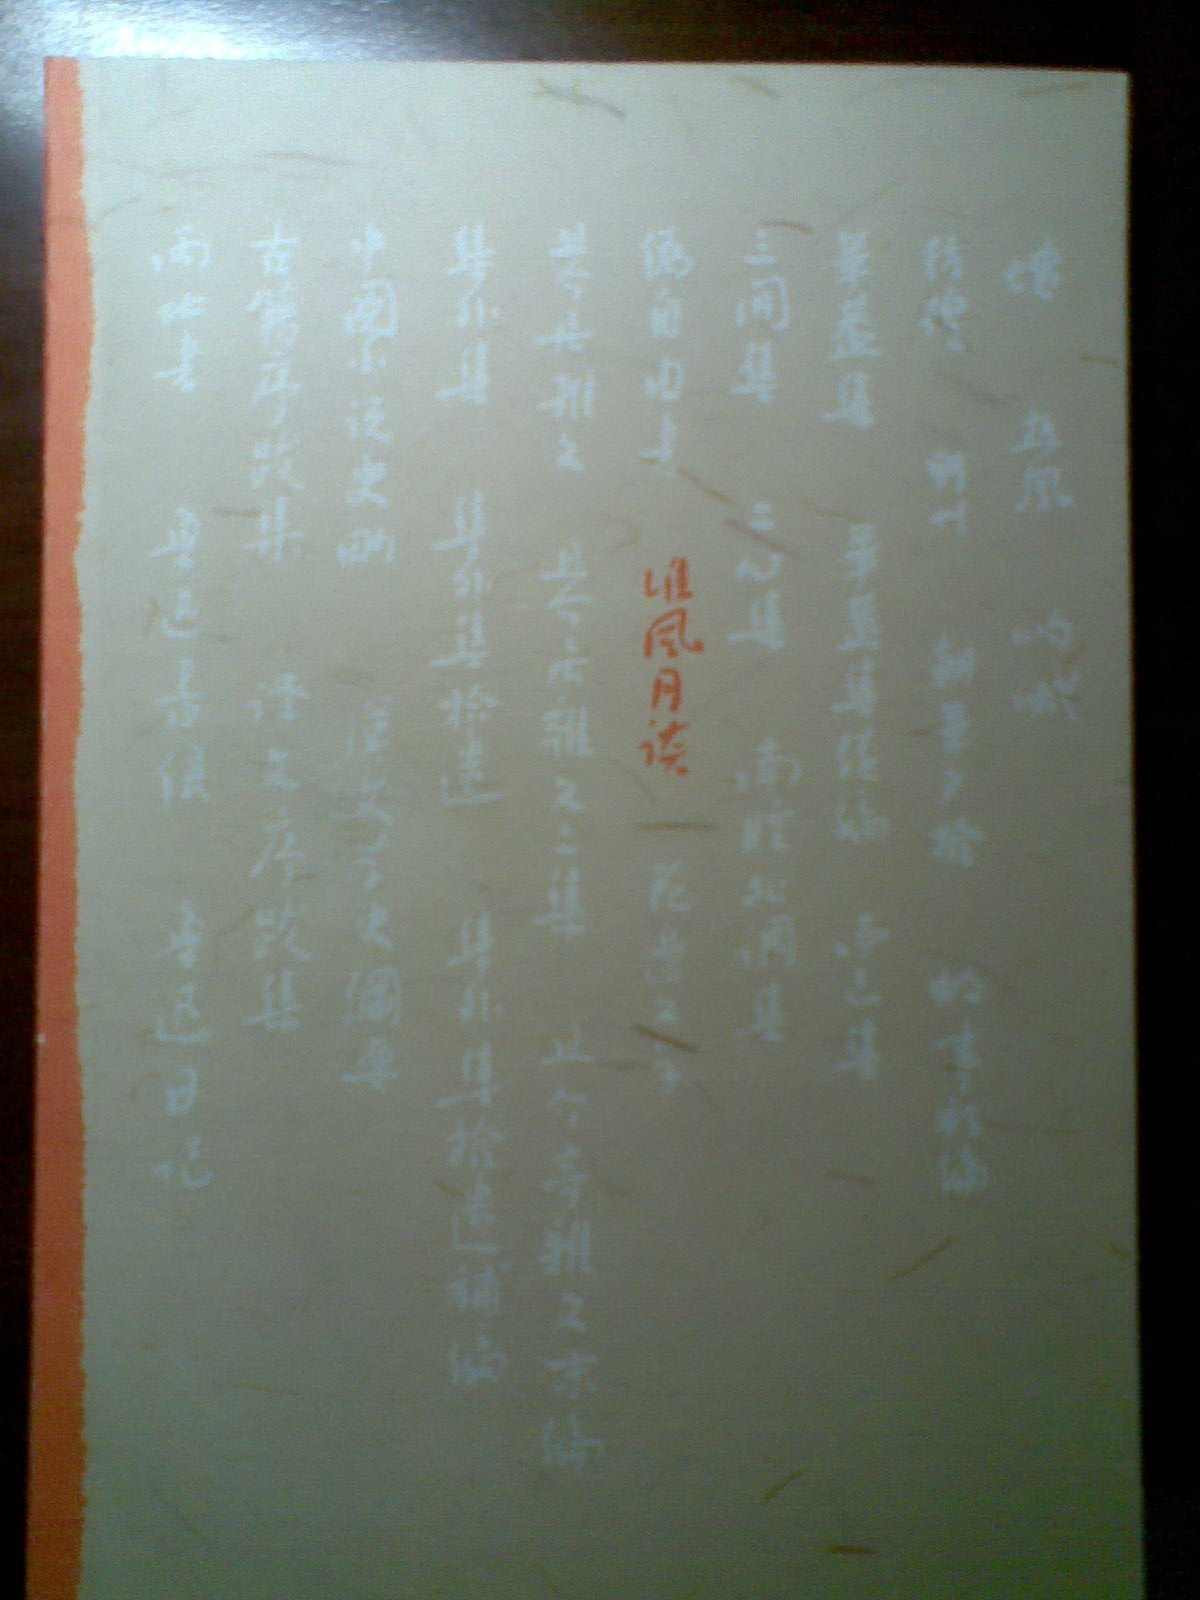 坟 热风 呐喊
彷徨 野草 朝花夕拾 故事新编
华盖集 华盖集续编 而已集
三闲集 二心集 南腔北调集
伪自由书 准风月谈 花边文学
且介亭杂文 且介亭杂文二集 且介亭杂文末编
集外集 集外集拾遗 集外集拾遗补编
中国小说史略 汉文学史纲要
古籍序跋集 译文序跋集
两地书 鲁迅书信 鲁迅日记